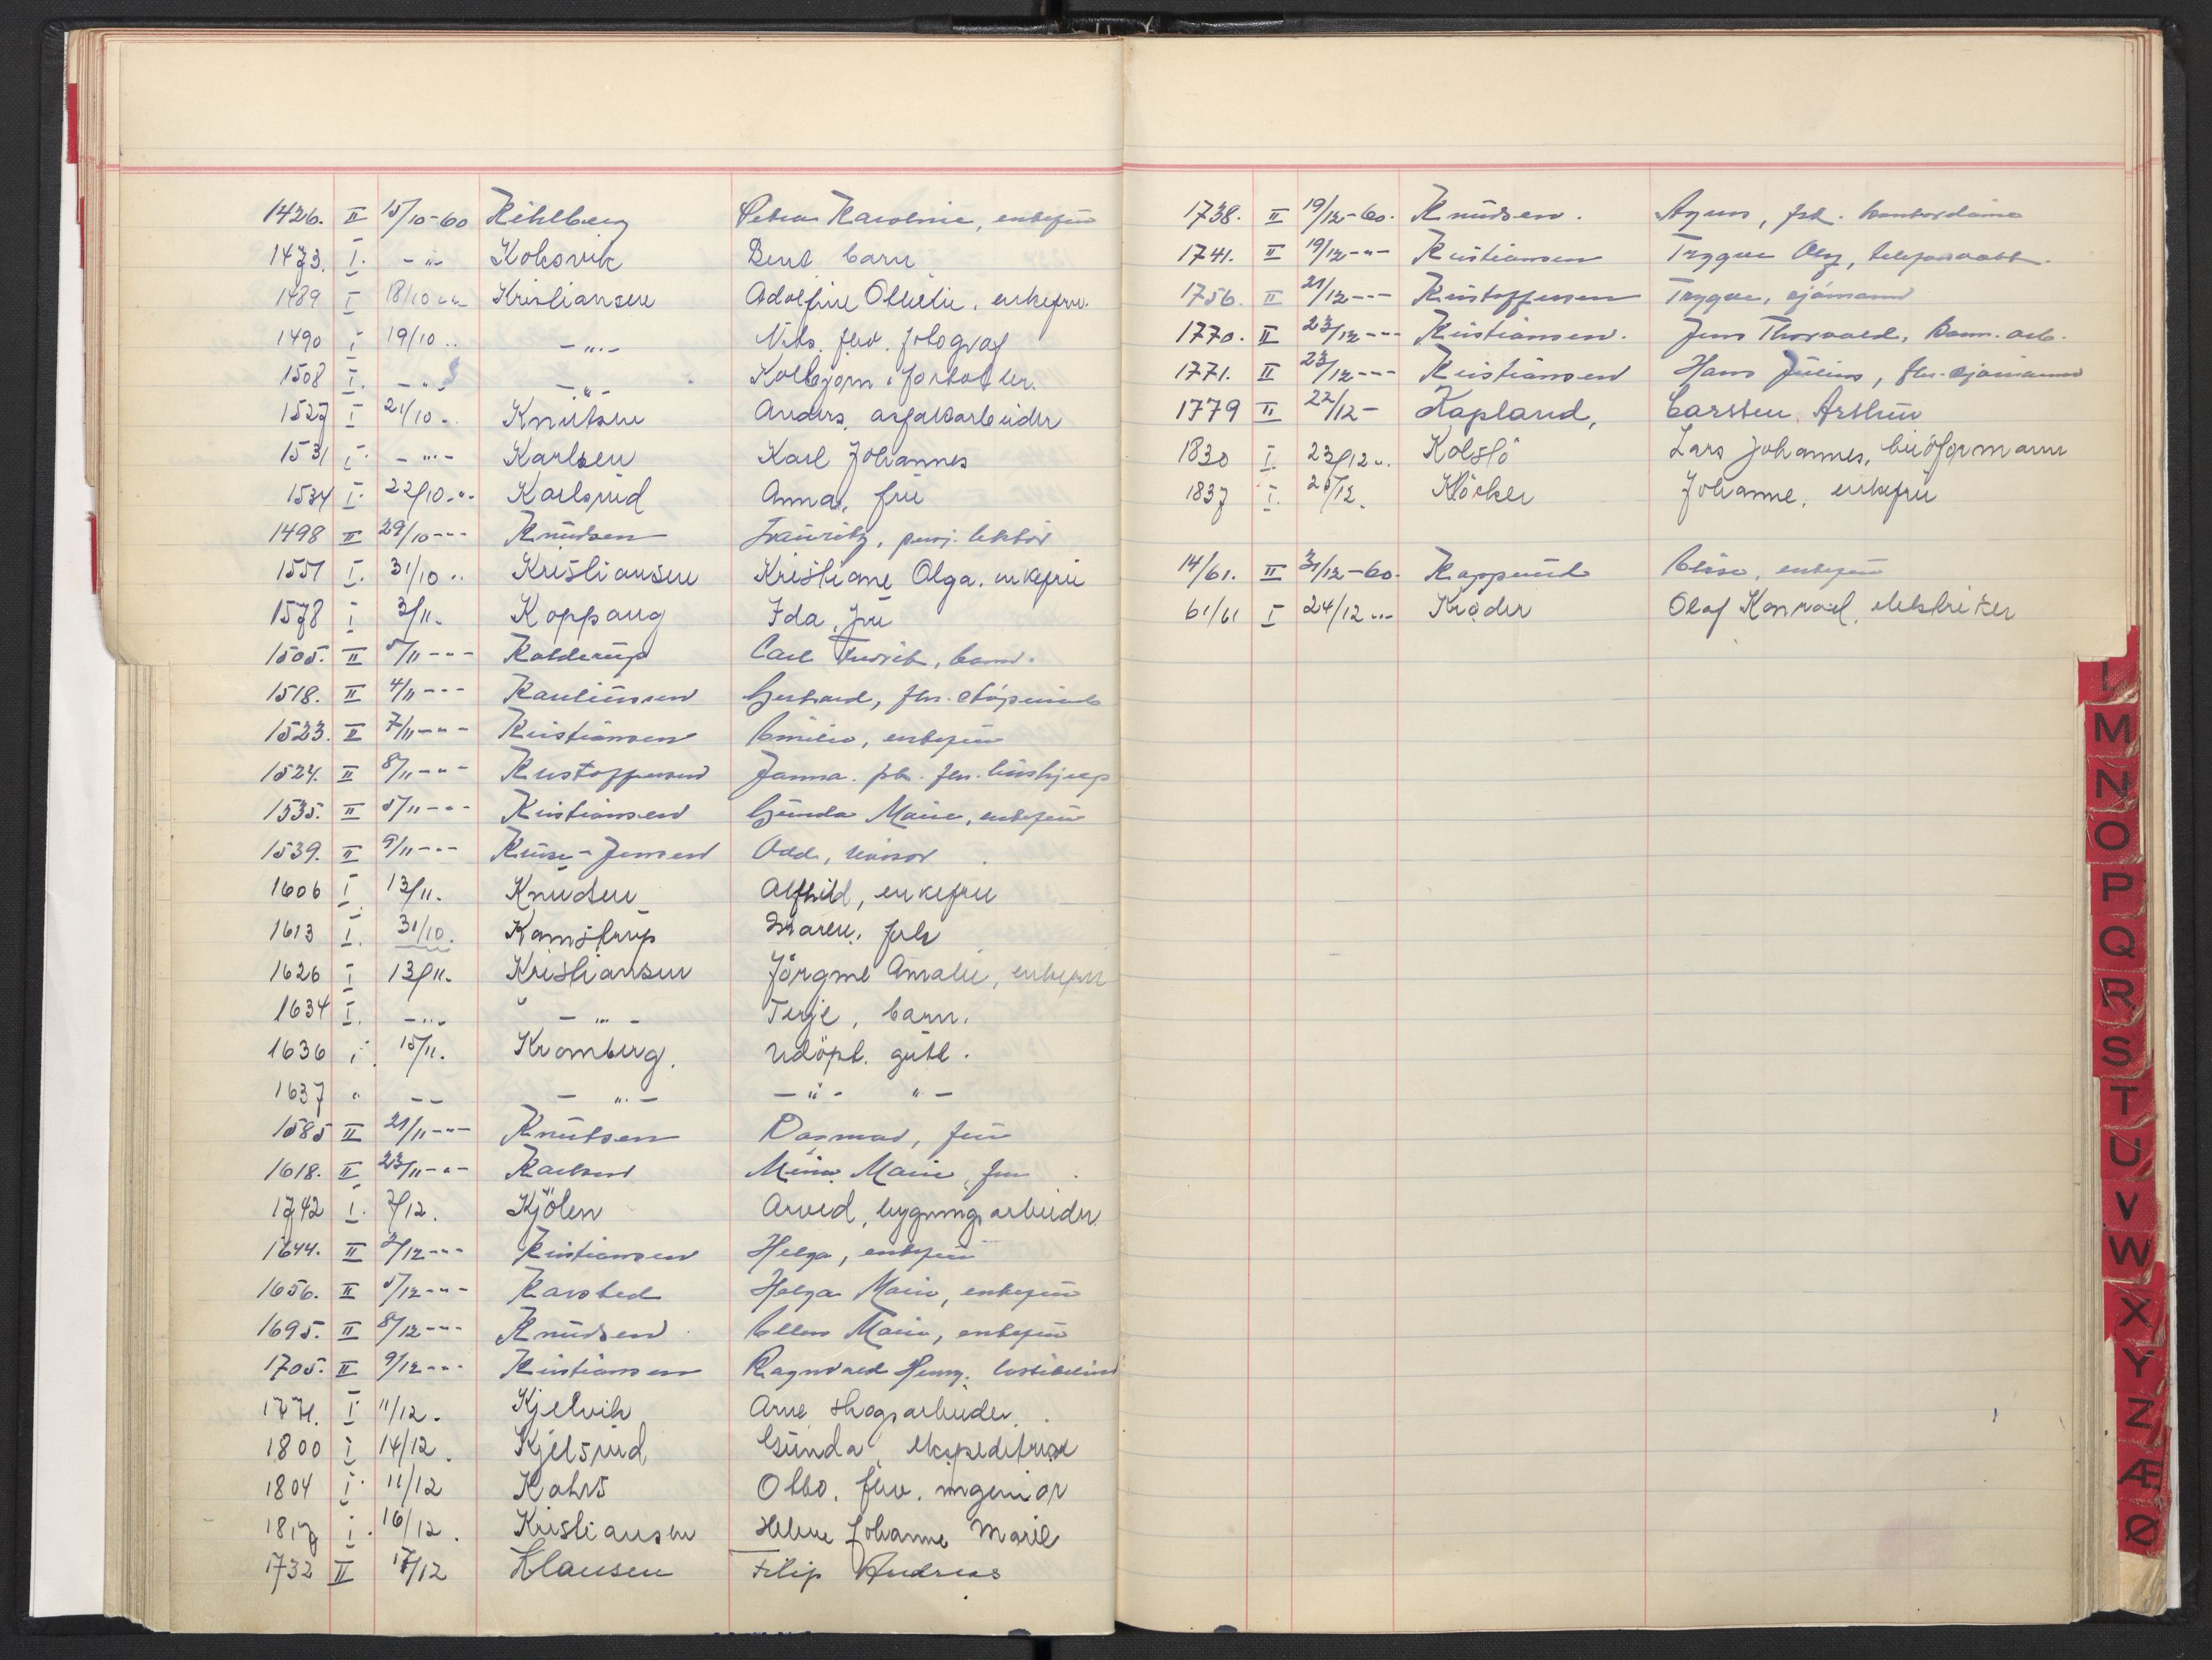 1426. II 15/10-60 Kihlberg Petra Karoline, enkefrü
1473. I. -"- Kokosvik Bent barn
1489 I 18/10 -"- Kristiansen Adolfine Otilie. enkefru.
1490 I 19/10 .. -"- Nils, fhv. fotograf
1508 I. -"- -"- Kolbjørn
1527 I 21/10 .. Knutsen Anders, asfaltarbeider
1531 I. -"- Karlsen Karl Johannes
1534 I. 22/10 -"- Karlsrüd Anna, frü
1498 II 29/10 -"- Knüdsen Lauritz, pensj. lektör
1551 I. 31/10 .. Kristiansen Kristiane Olga. enkefrü
1578 I 3/11. Koppang Ida, frü
1505. II 5/11 -"- Kolderüp Carl Fredrik, barn.
1518. II 4/11 -"- Gerhard, fhv.
1523. II 7/11 -"- Kristiansen Emilie, enkefrü
1524. II 8/11 -"- Kristoffersen Janna. frk. fhv. hüshjelp
1535. II 5/11 -"- Kristiansen Günda Marie, enkefrü
1539. II 9/11 -"- Krüse-Jensen Odd,
1606 I 13/11. Knüdsen Alfhild, enkefru
1613 I. 31/10. Kamstrup Maren, frk
1626 I 13/11. Kristiansen Jörgine Amalie, enkefru
1634 I. -"- -"- Terje, barn.
1636 I. 15/11. Kromberg. Udöpt. gütt.
1637 " -- -"- -"- "-
1585 II 21/11 -"- Knütsen Dagmar, frü
1618. II 23/11 -"- Karlsen Mina Marie, fru
1742 I. 2/12. Kjölen Arvid, bygningsarbeider
1644. II 2/12 -"- Kristiansen Helga, enkefrü
1656. II 5/12 -"- Karsted Helga Marie, enkefrü
1695. II 8/12 -"- Knüdsen Ellen Marie, enkefrü
1705. II 9/12 -"- Kristiansen Ragnvald Henry.
1771. I 11/12. Kjelvik Arne skogsarbeider
1800 I 14/12. Kjelsrüd Günda ekspeditrise
1804 I 11/12 Kahrs Otto. fhv. ingeniør
1817 I. 16/12. Kristiansen Helene Johanne Marie
1732 II 17/12 Klausen Filip Andreas
1738. II 19/12-60. Knüdsen. Agnes, frk. kontordame
1741. II 19/12 -"- Kristiansen Trygve
1756. II 21/12 --- Kristoffersen Trygve, sjömann
1770. II 23/12 -"- Kristiansen. Jens Thorvald, komm. arb.
1771. II 23/12 --- Kristiansen Hans Jülius, fhv. sjömann
1779 II 22/12 - Kapland, Carsten Arthur
1830 I. 23/12 .. Kolstö Lars Johannes, büröformann
1837 I. 25/12. Klöcker Johanne, enkefru
14/61. II 31/12-60. Kopperüd Elise, enkefrü
61/61 I 24/12 ... Krøder Olaf Konrad, elektriker
L
M
N
O
P
Q
R
S
T
U
V
W
X
Y
Z
Æ
Ø